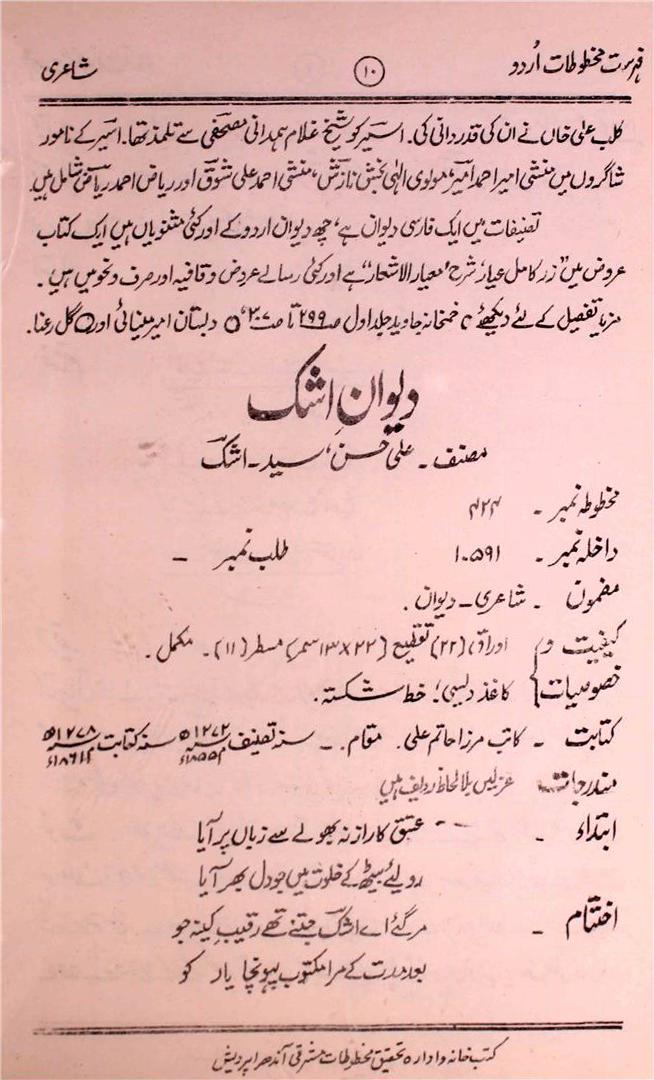 فہرست مخطوطات اُردو ۱۰ شاعری
کلب علی خاں نے ان کی قدردانی کی۔ اسیر کو شیخ غلام ہمدانی مصحفی سے تلمذ تھا۔ اسیر کے نامور
شاگروں میں منشی امیر احمد امیر، مولوی الٰہی بخش نازش، منشی احمد علی شوق اور ریاض احمد ریاض شامل ہیں۔
تصنیفات میں ایک فارسی دیوان ہے، چھ دیوان اردو کے اور کئی مثنویاں ہیں ایک کتاب
عروض میں "زر کامل عیار" شرح "معیار الاشعار" ہے اور کئی رسالے عروض و قافیہ اور صرف و نحو میں ہیں۔
مزید تفصیل کے لئے دیکھئے خمخانہ جاوید جلد اول ص ۲۹۹ تا ص ۳۰۷، دبستان امیر مینائی اور گل رعنا۔
دیوانِ اشک
مصنف ۔ علی حسن، سید ۔ اشک
مخطوطہ نمبر ۔ ۴۲۴
داخلہ نمبر ۔ ۱۰۵۹۱ طلب نمبر ۔
مضمون ۔ شاعری ۔ دیوان ۔
کیفیت و اوراق (۲۲) تقطیع (۲۲×۱۳ سمر) مسطر (۱۱) ۔ مکمل ۔
خصوصیات کاغذ دلیسی؛ خط شکستہ ۔
کتابت ۔ کاتب مرزا حاتم علی ۔ مقام ۔ ۔ سنہ تصنیف ۱۲۷۲ھ ۱۸۵۵ء سنہ کتابت ۱۲۷۸ھ ۱۸۶۱ء
مندرجات غزلیں بلا لحاظ ردیف ہیں
ابتداء ۔ عشق کا راز نہ بھولے سے زباں پر آیا
رولیئے بیٹھ کے خلوت میں جو دل بھر آیا
اختتام ۔ مر گئے اے اشک جتنے تھے رقیبِ کینہ جو
بعد مدت کے مرا مکتوب پہونچا یار کو
کتب خانہ و ادارہ تحقیق مخطوطات مشرقی آندھرا پردیش